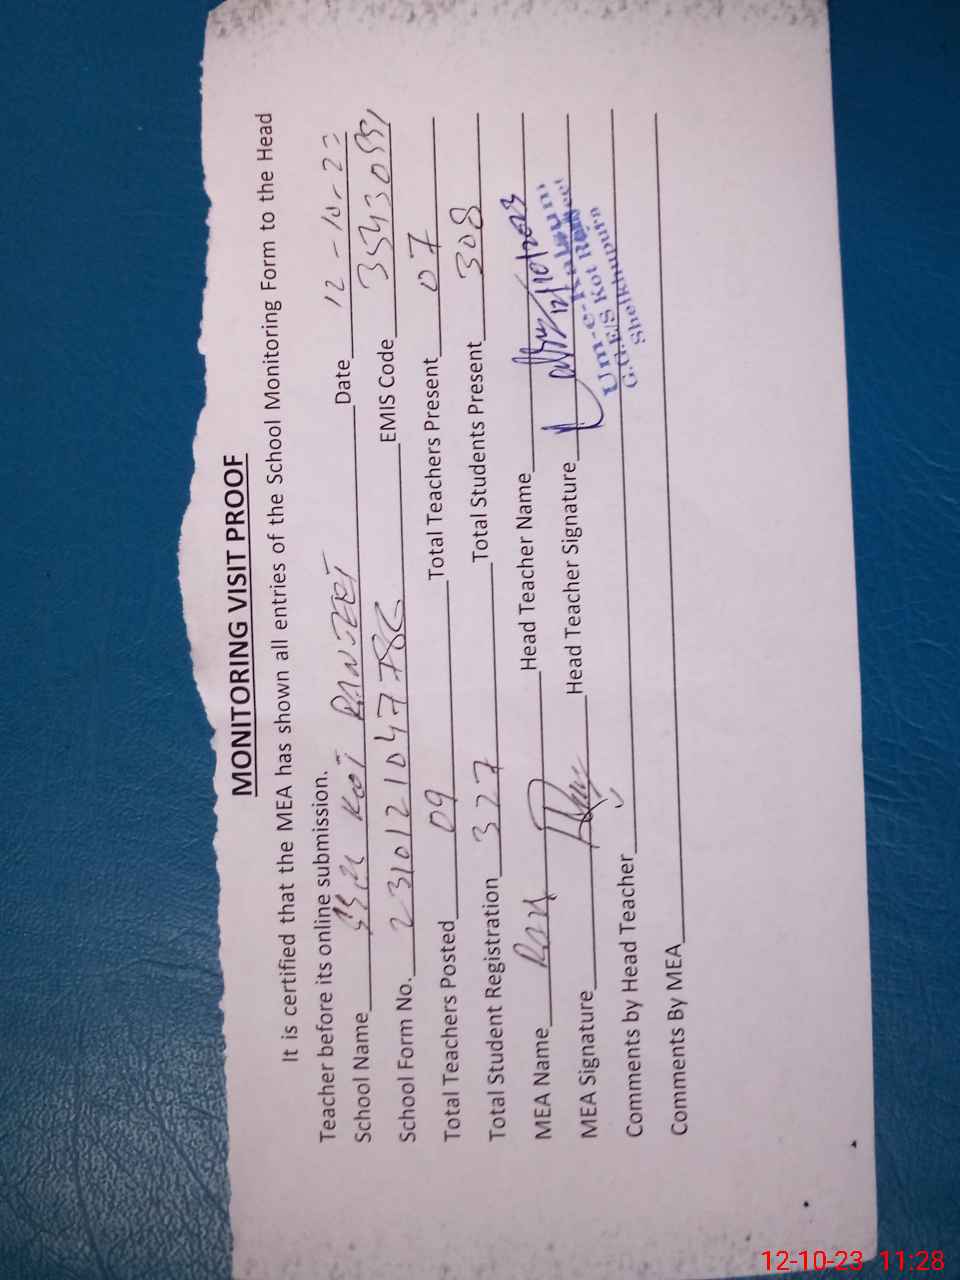 MONITORING VISIT PROOF
It is certified that the MEA has shown all entries of the School Monitoring Form to the Head
Teacher before its online submission.
School Name KOT RANJEET Date 12-10-23
School Form No. EMIS Code
Total Teachers Posted 09 Total Teachers Present 07
Total Student Registration 327 Total Students Present 308
MEA Name Head Teacher Name
MEA Signature Head Teacher Signature 12/10/2023
Um-e-Kalsum
Comments by Head Teacher G.G.E/S Kot Ranjeet
Sheikhupura
Comments By MEA
12-10-23 11:28